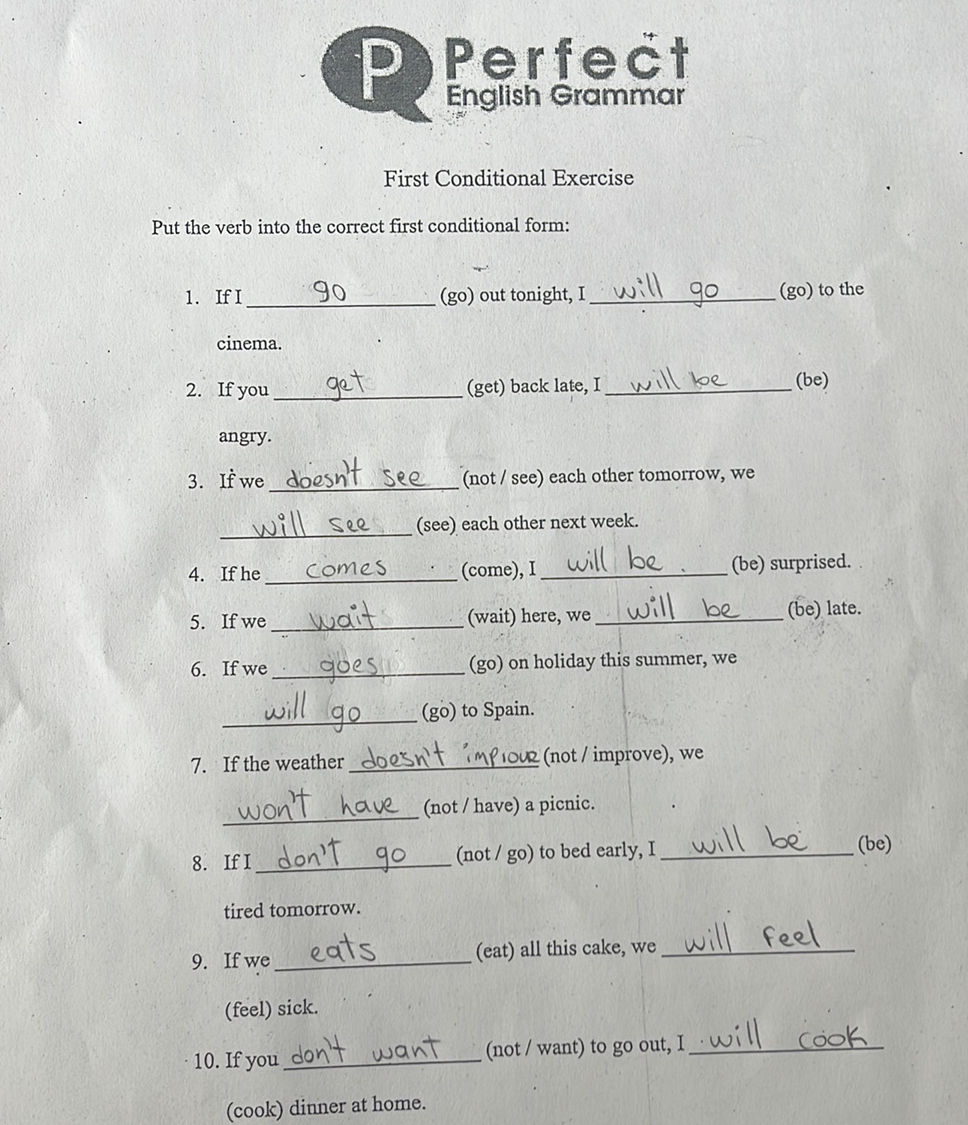 P Perfect
English Grammar
First Conditional Exercise
Put the verb into the correct first conditional form:
1. If I go (go) out tonight, I will go (go) to the
cinema.
2. If you get (get) back late, I will be (be)
angry.
3. If we doesn't see (not / see) each other tomorrow, we
will see (see) each other next week.
4. If he comes (come), I will be (be) surprised.
5. If we wait (wait) here, we will be (be) late.
6. If we goes (go) on holiday this summer, we
will go (go) to Spain.
7. If the weather doesn't improve (not / improve), we
won't have (not / have) a picnic.
8. If I don't go (not / go) to bed early, I will be (be)
tired tomorrow.
9. If we eats (eat) all this cake, we will feel
(feel) sick.
10. If you don't want (not / want) to go out, I will cook
(cook) dinner at home.